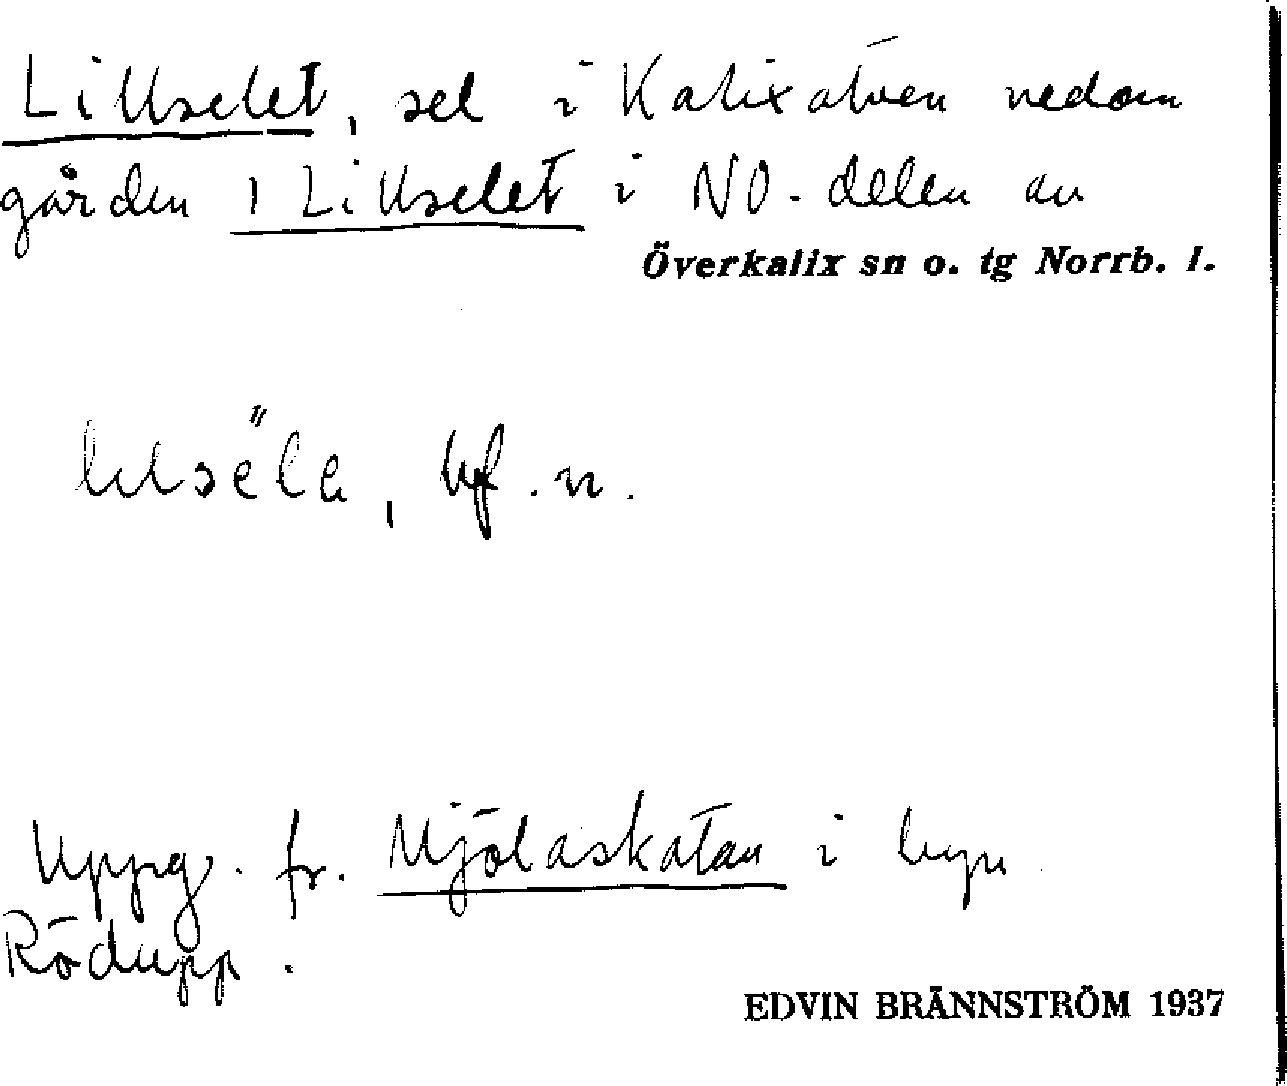 Lillselet, sel i Kalixälven nedom
gården 1 Lillselet i NO-delen av
Överkalix sn o. tg Norrb. l.
bf. n.
Uppg. fr. Mjölaskatan i byn
Rödupp.
EDVIN BRÄNNSTRÖM 1937